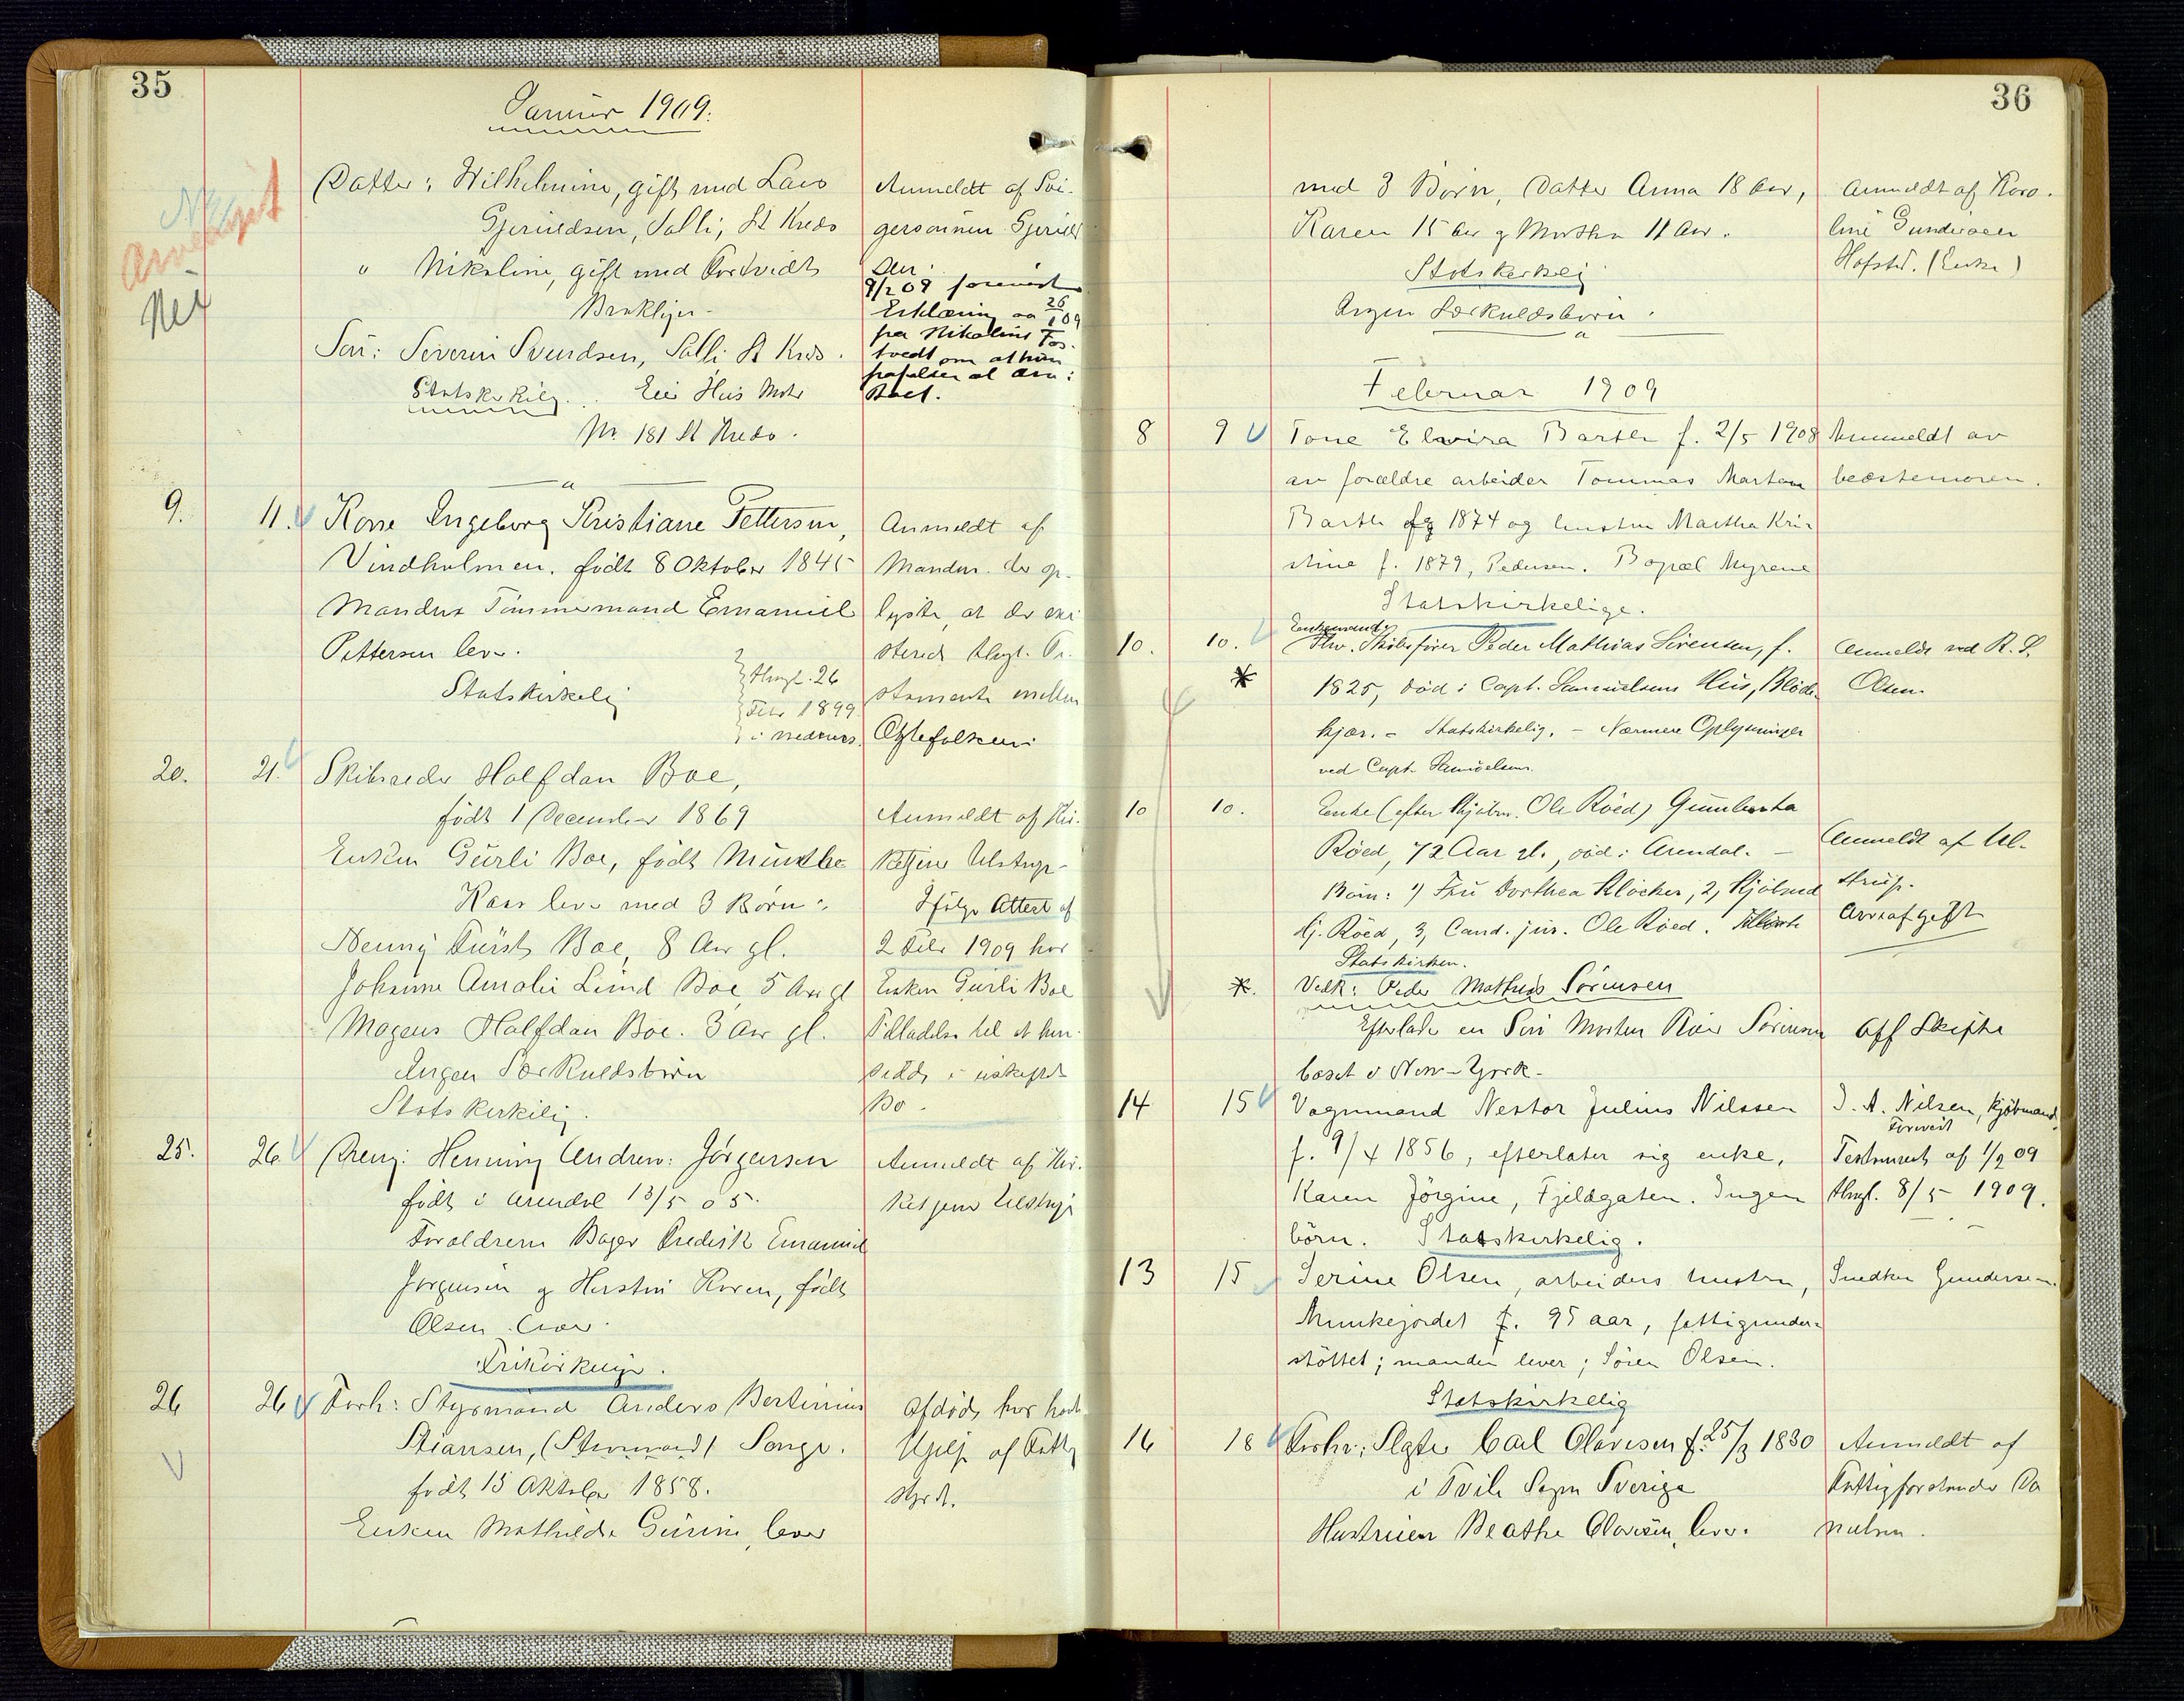 35
Januar 1909.
Datter: Wilhelmine, gift med Lars
Gjeruldsen, Solli, St Kreds
" Nikoline, gift med Tostvedt
Brooklyn
Søn: Severin Svendsen, Solli St Kreds.
Statskirkelig. Eier Hus Matr
No. 181 St Kreds.
Anmeldt af Svi-
gersønnen Gjeruld
sen.
9/2 09 forevist
Erklæring av 26/1 09
fra Nikoline Tos-
tvedt om at hun
frafalder al Arv i
Boet.
Arveafgift
Nei
9. 11. Kone Ingeborg Kristiane Pettersen,
Vindholmen. født 8 Oktober 1845
Manden Tømmermand Emanuel
Pettersen lever.
Statskirkelig
thngl. 26
Febr 1899
i nedenes.
Anmeldt af
Manden. der op-
lyste, at der exi
sterede thngl. Te-
stamente mellem
Ægtefolkene
20. 21. Skibsreder Halfdan Boe,
født 1 December 1869
Enken Gurli Boe, født Munthe
Kaas lever med 3 Børn:
Nenny Fürst Boe, 8 Aar gl.
Johanne Amalie Lund Boe, 5 Aar gl
Mogens Halfdan Boe. 3 Aar gl.
Ingen Særkuldsbørn
Statskirkelig.
Anmeldt af Kir-
ketjener Ulstrup
Ifølge Attest af
2 Febr 1909 har
Enken Gurli Boe
Tilladelse til at hen-
sidde i uskiftet
Bo.
25. 26. Dreng: Henning Andreas Jørgensen
født i Arendal 13/5 05.
Forældrene Bager Fredrik Emanuel
Jørgensen og Hustru Karen, født
Olsen lever.
Frikirkelige.
Anmeldt af Kir-
ketjener Ulstrup
26 26 Forh: Styrmand Anders Bertinius
Stiansen, (Styrmand) Songe.
født 15 Oktober 1858.
Enken Mathilde Gurine, lever
Afdøde har havt
Hjelp af Fattig
styret.
36
med 3 Børn, Datter Anna 18 Aar,
Karen 15 Aar og Martha 11 Aar.
Statskirkelig
Ingen Særkuldsbørn.
Anmeldt af Karo-
line Gundersen
Hofsted. (Enke)
Februar 1909
8 9 Tone Elvira Barth f. 2/5 1908
av forældre arbeider Tommas Martin
Barth f 1874 og hustru Martha Kri-
stine f. 1879, Pedersen. Bopæl Myrene
Statskirkelige.
Anmeldt av
bedstemoren.
10. 10. Enkemand
Fhv. Skibsfører Peder Mathias Sørensen, f.
1825, død i Capt. Samuelsens Hus, Bløde-
kjær. - Statskirkelig. - Nærmere Oplysninger
ved Capt. Samuelsen.
Anmeldt ved R. S.
Olsen.
10 10. Enke (efter Kjøbm. Ole Røed) Gunberta
Røed, 72 Aar gl., død i Arendal. -
Børn: 1) Fru Dorthea Kløcker, 2, Kjøbmd
Kj. Røed, 3, Cand. jur. Ole Røed.
Statskirken.
Anmeldt af Ul-
strup.
Arveafgift
Vedk: Peder Mathias Sørensen
Efterlader en Søn Morten Sørensen
bosat i New-York.
Off Skifte
14 15 Vognmand Nestor Julius Nilssen
f. 9/4 1856, efterlater sig enke,
Karen Jørgine, Fjeldgaten. Ingen
børn. Statskirkelig.
J. A. Nilsen, kjøbmand
Forevist
Testament af 1/2 09
thngl. 8/5 1909.
13 15 Serine Olsen, arbeiders hustru,
Munkejordet f. 95 aar, fattigunder-
støttet; manden lever; Søren Olsen.
Statskirkelig
Snedker Gundersen.
16 18 Forhv: Slagter Carl Olavesen f. 25/3 1830
i Tvile Sogn Sverige
Hustruen Beathe Olavesen, lever.
Anmeldt af
Fattigforstander Da
nielsen.